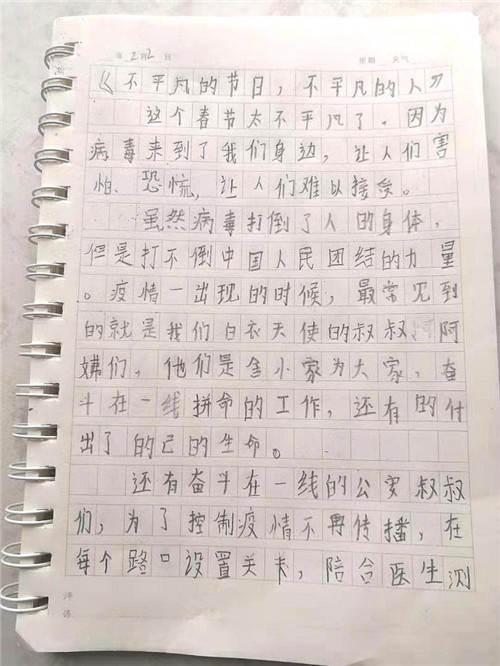 年 2月2 日 星期 天气
《不平凡的节日,不平凡的人》
这个春节太不平凡了。因为
病毒来到了我们身边,让人们害
怕、恐慌,让人们难以接受。
虽然病毒打倒了人的身体,
但是打不倒中国人民团结的力量
。疫情一出现的时候,最常见到
的就是我们白衣天使的叔叔、阿
姨们,他们是舍小家为大家,奋
斗在一线拼命的工作,还有的付
出了的己的生命。
还有奋斗在一线的公安叔叔
们,为了控制疫情不再传播,在
每个路口设置关卡,陪合医生测
评
语